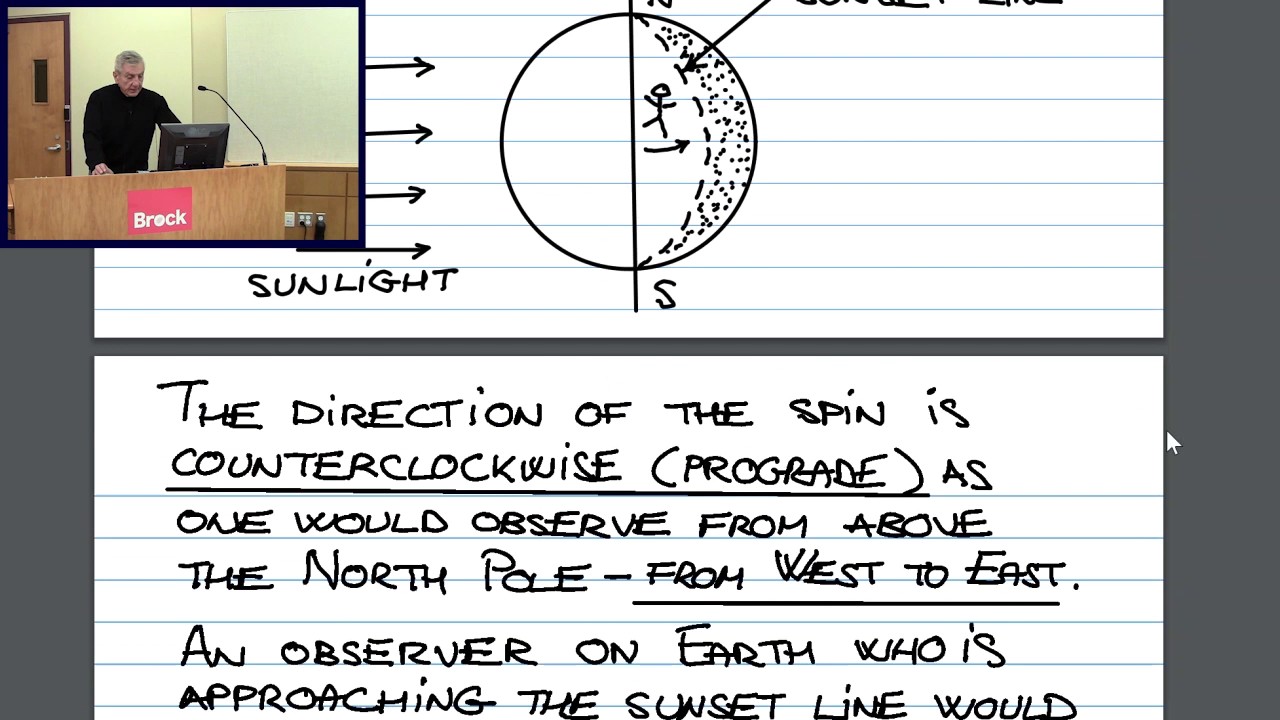 N
SUNSET LINE
Brock
SUNLIGHT
S
THE DIRECTION OF THE SPIN IS
COUNTERCLOCKWISE (PROGRADE) AS
ONE WOULD OBSERVE FROM ABOVE
THE NORTH POLE – FROM WEST TO EAST.
AN OBSERVER ON EARTH WHO IS
APPROACHING THE SUNSET LINE WOULD